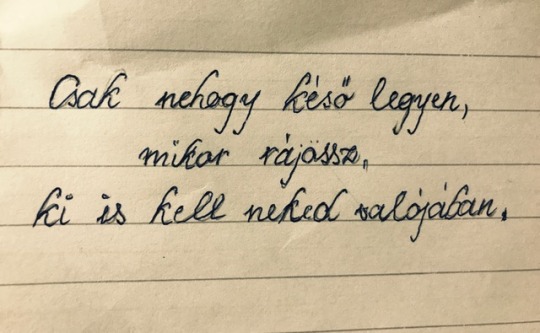 Csak nehogy késő legyen,
mikor rájössz,
ki is kell neked valójában.